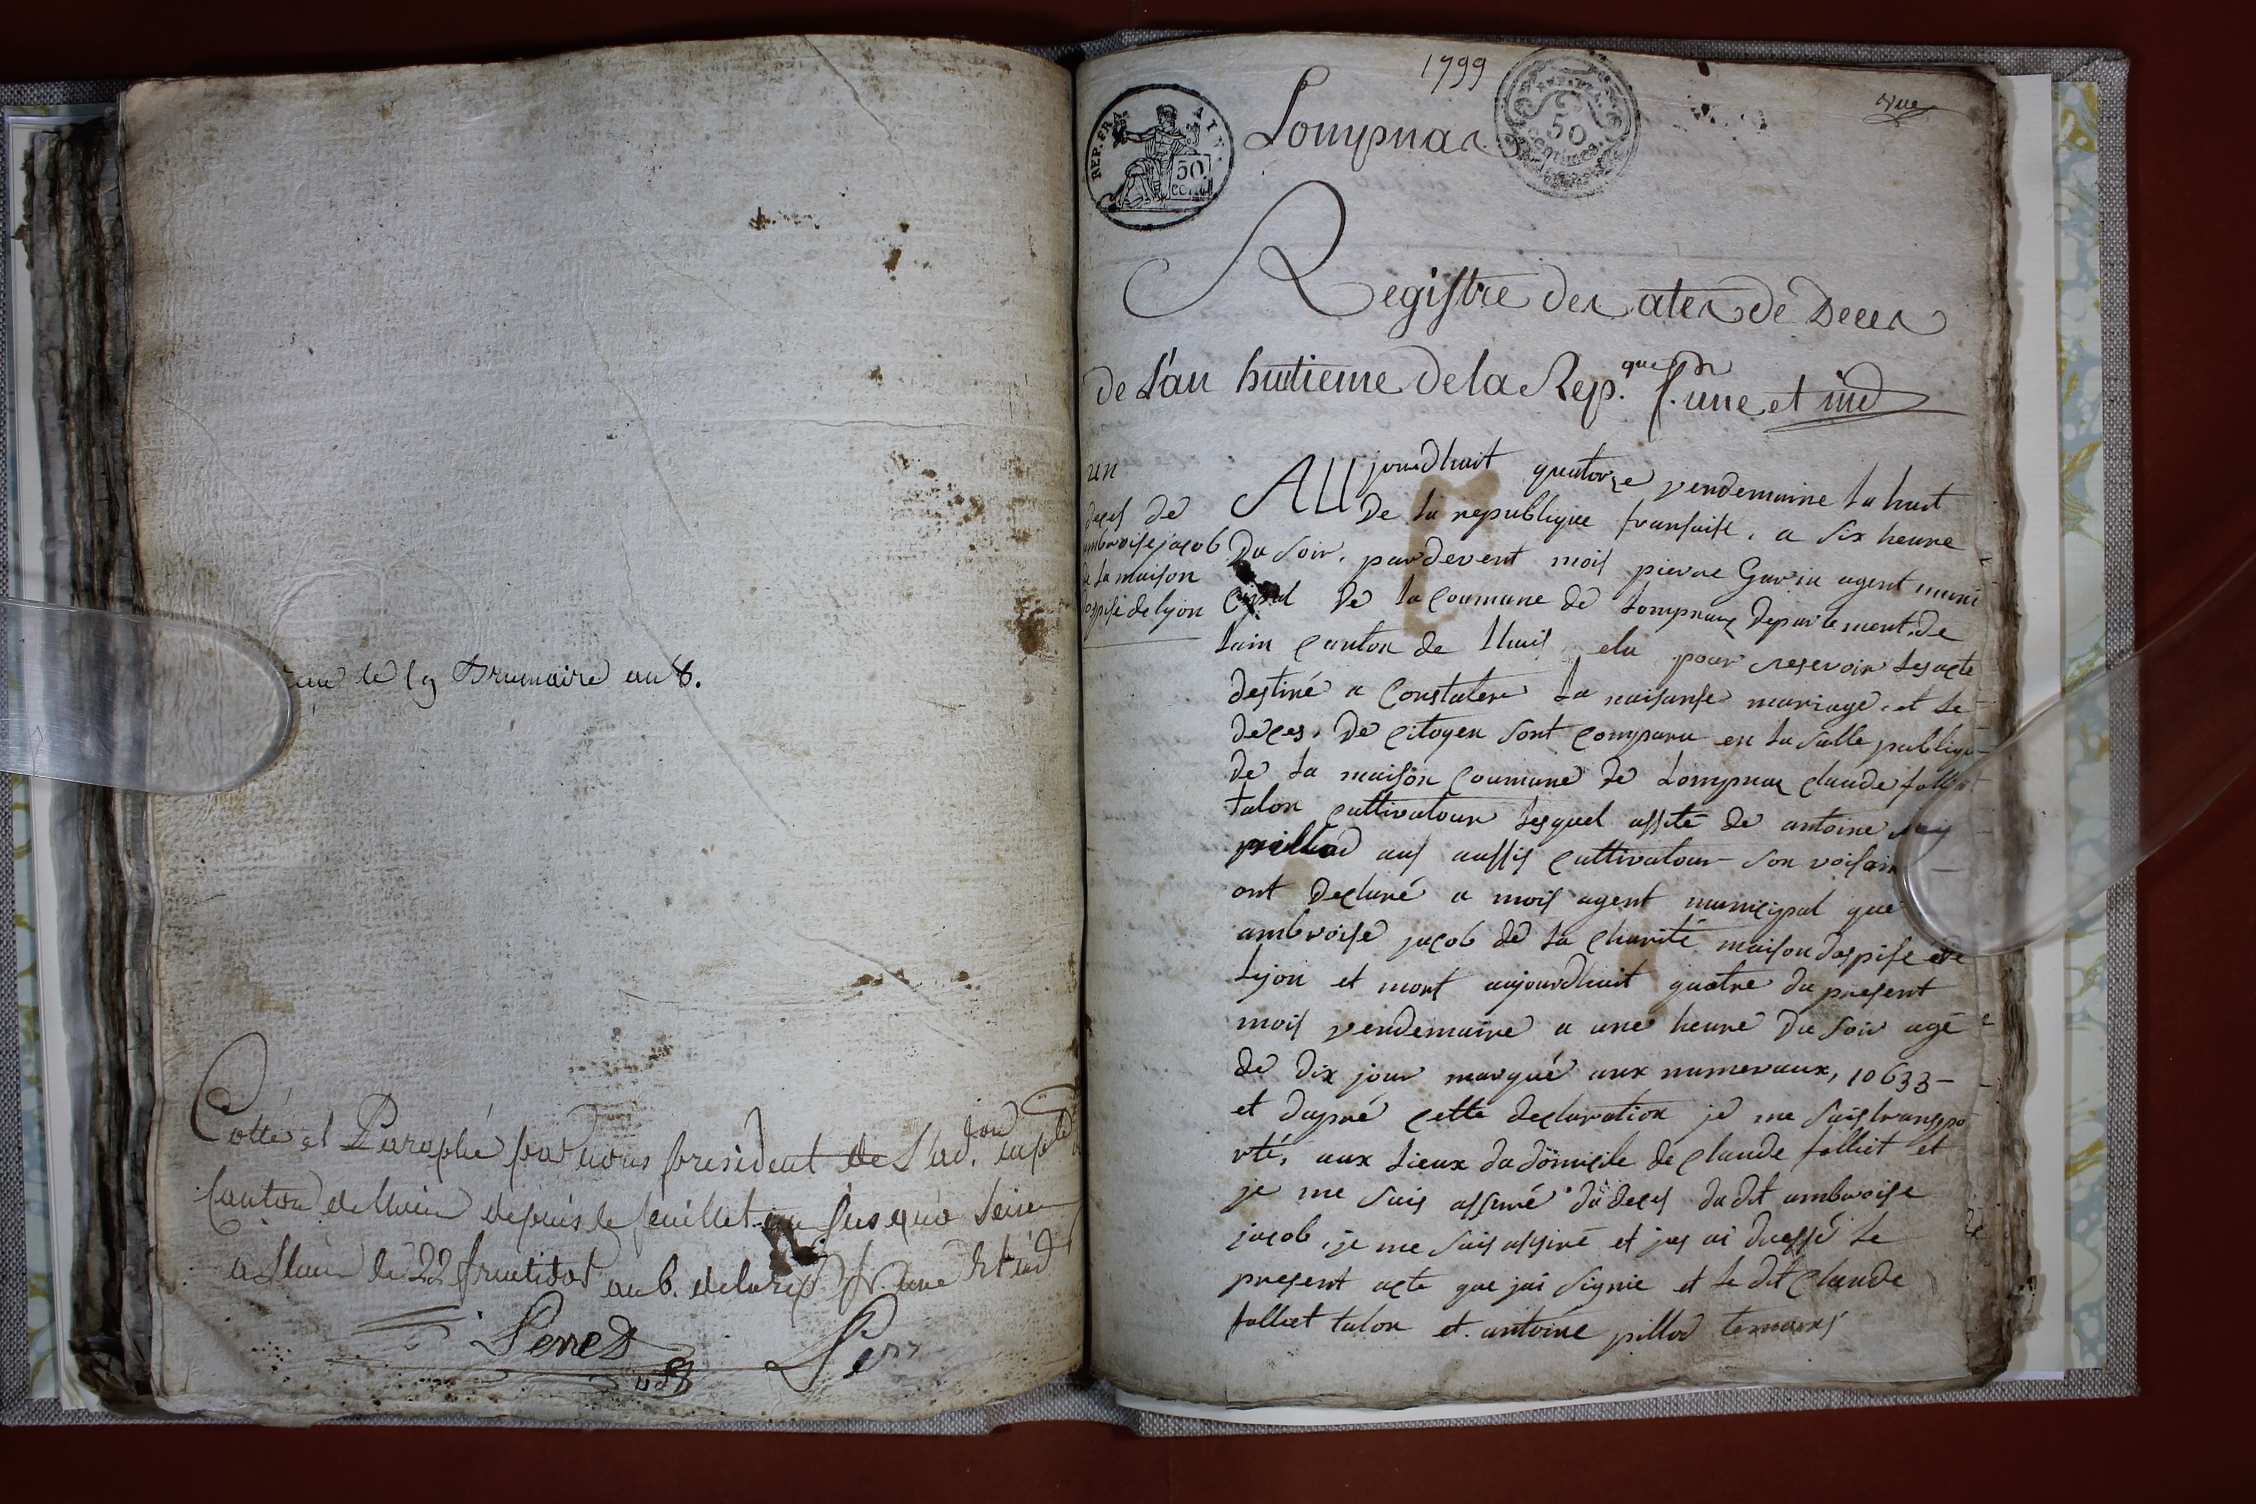 de 19 Brumaire an 8.
Cotté et Paraphé par nous president de L'ad.on
canton de lhuis depuis le feuillet un jusqu'a
a Lhuis le 22 fructidor an 6. de la rep. fr. une et ind
1799
vue
REP. FRA
50
cent
50
centimes
Lompnas
Registre des ates de Deces
de L'an huitieme de la Rep.que f.se une et ind
un
deces de
ambroise jacob
de La maison
dospise de lyon
AUjourdhuit quatorze vendemaire La huit
De La republique fransaise, a six heure
Du soir, pardevent mois pierre Gurin agent muni
cipal De La Coumune de Lompnax departement de
Lain Canton de Lhuis elu pour reservoir Les acte
destiné a Constater La naisanse mariage, et Le
deces, De Citoyen sont Comparu en La salle publique
De La maison Coumune de Lompnax Claude folliet
talon Cultivatour Lesquel assité de antoine
pillod aus aussis Cultivatour son voisain
ont Declaré a mois agent municipal que
ambroise jacob de La Charité maison dospise de
Lyon et mort aujourdhuit quatre du present
mois vendemaire a une heure Du soir agé
de Dix jour marqué aux numeraux, 10633 -
et dapré Cette declaration je me suis transpo
rté, aux Lieux du domicile de Claude folliet et
je me suis assuré du deces dudit ambroise
jacob, je me suis assiré et jas ai dressé Le
present acte que jai signie et Le dit Claude
folliet talon et antoine pillod temoins